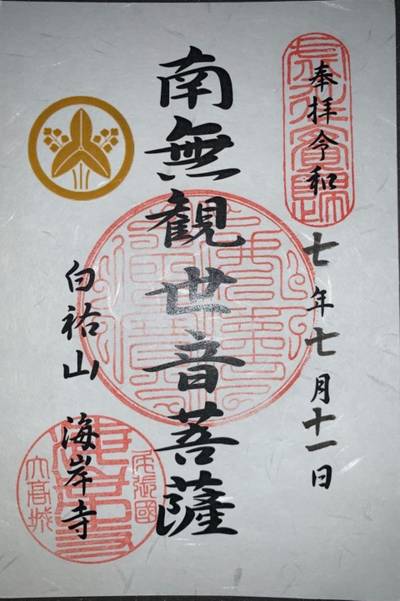 奉拝令和
七年七月十一日
南無観世音菩薩
白祐山
海岸寺
尾張國
大高城